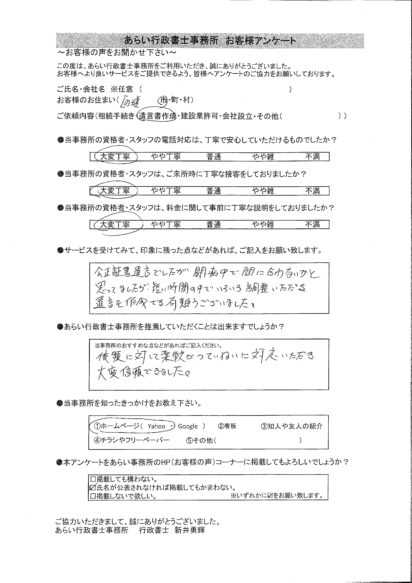 あらい行政書士事務所　お客様アンケート
～お客様の声をお聞かせ下さい～
この度は、あらい行政書士事務所をご利用いただき、誠にありがとうございました。
お客様へより良いサービスをご提供できるよう、皆様へアンケートのご協力をお願いしております。
ご氏名・会社名　※任意（　　　　）
お客様のお住まい（　　市・町・村）
ご依頼内容（相続手続き・遺言書作成・建設業許可・会社設立・その他（　　　　））
●当事務所の資格者・スタッフの電話対応は、丁寧で安心していただけるものでしたか？
大変丁寧　やや丁寧　普通　やや雑　不満
●当事務所の資格者・スタッフは、ご来所時に丁寧な接客をしておりましたか？
大変丁寧　やや丁寧　普通　やや雑　不満
●当事務所の資格者・スタッフは、料金に関して事前に丁寧な説明をしておりましたか？
大変丁寧　やや丁寧　普通　やや雑　不満
●サービスを受けてみて、印象に残った点などがあれば、ご記入をお願い致します。
公正証書遺言でしたが 間に合わないかと
思ってましたが 短い時間の中でいろいろ調整いただき
遺言を作成でき有難うございました。
●あらい行政書士事務所を推薦していただくことは出来ますでしょうか？
当事務所のおすすめな点などがあればご記入ください。
に対して柔軟かつていねいに対応いただき
大変信頼できました。
●当事務所を知ったきっかけをお教え下さい。
①ホームページ（　Yahoo　・　Google　）　②看板　③知人や友人の紹介
④チラシやフリーペーパー　⑤その他（　　　　）
●本アンケートをあらい事務所のHP（お客様の声）コーナーに掲載してもよろしいでしょうか？
□掲載しても構わない。
☑氏名が公表されなければ掲載してもかまわない。
□掲載しないで欲しい。　※いずれかに☑をお願い致します。
ご協力いただきまして、誠にありがとうございました。
あらい行政書士事務所　行政書士　新井勇輝